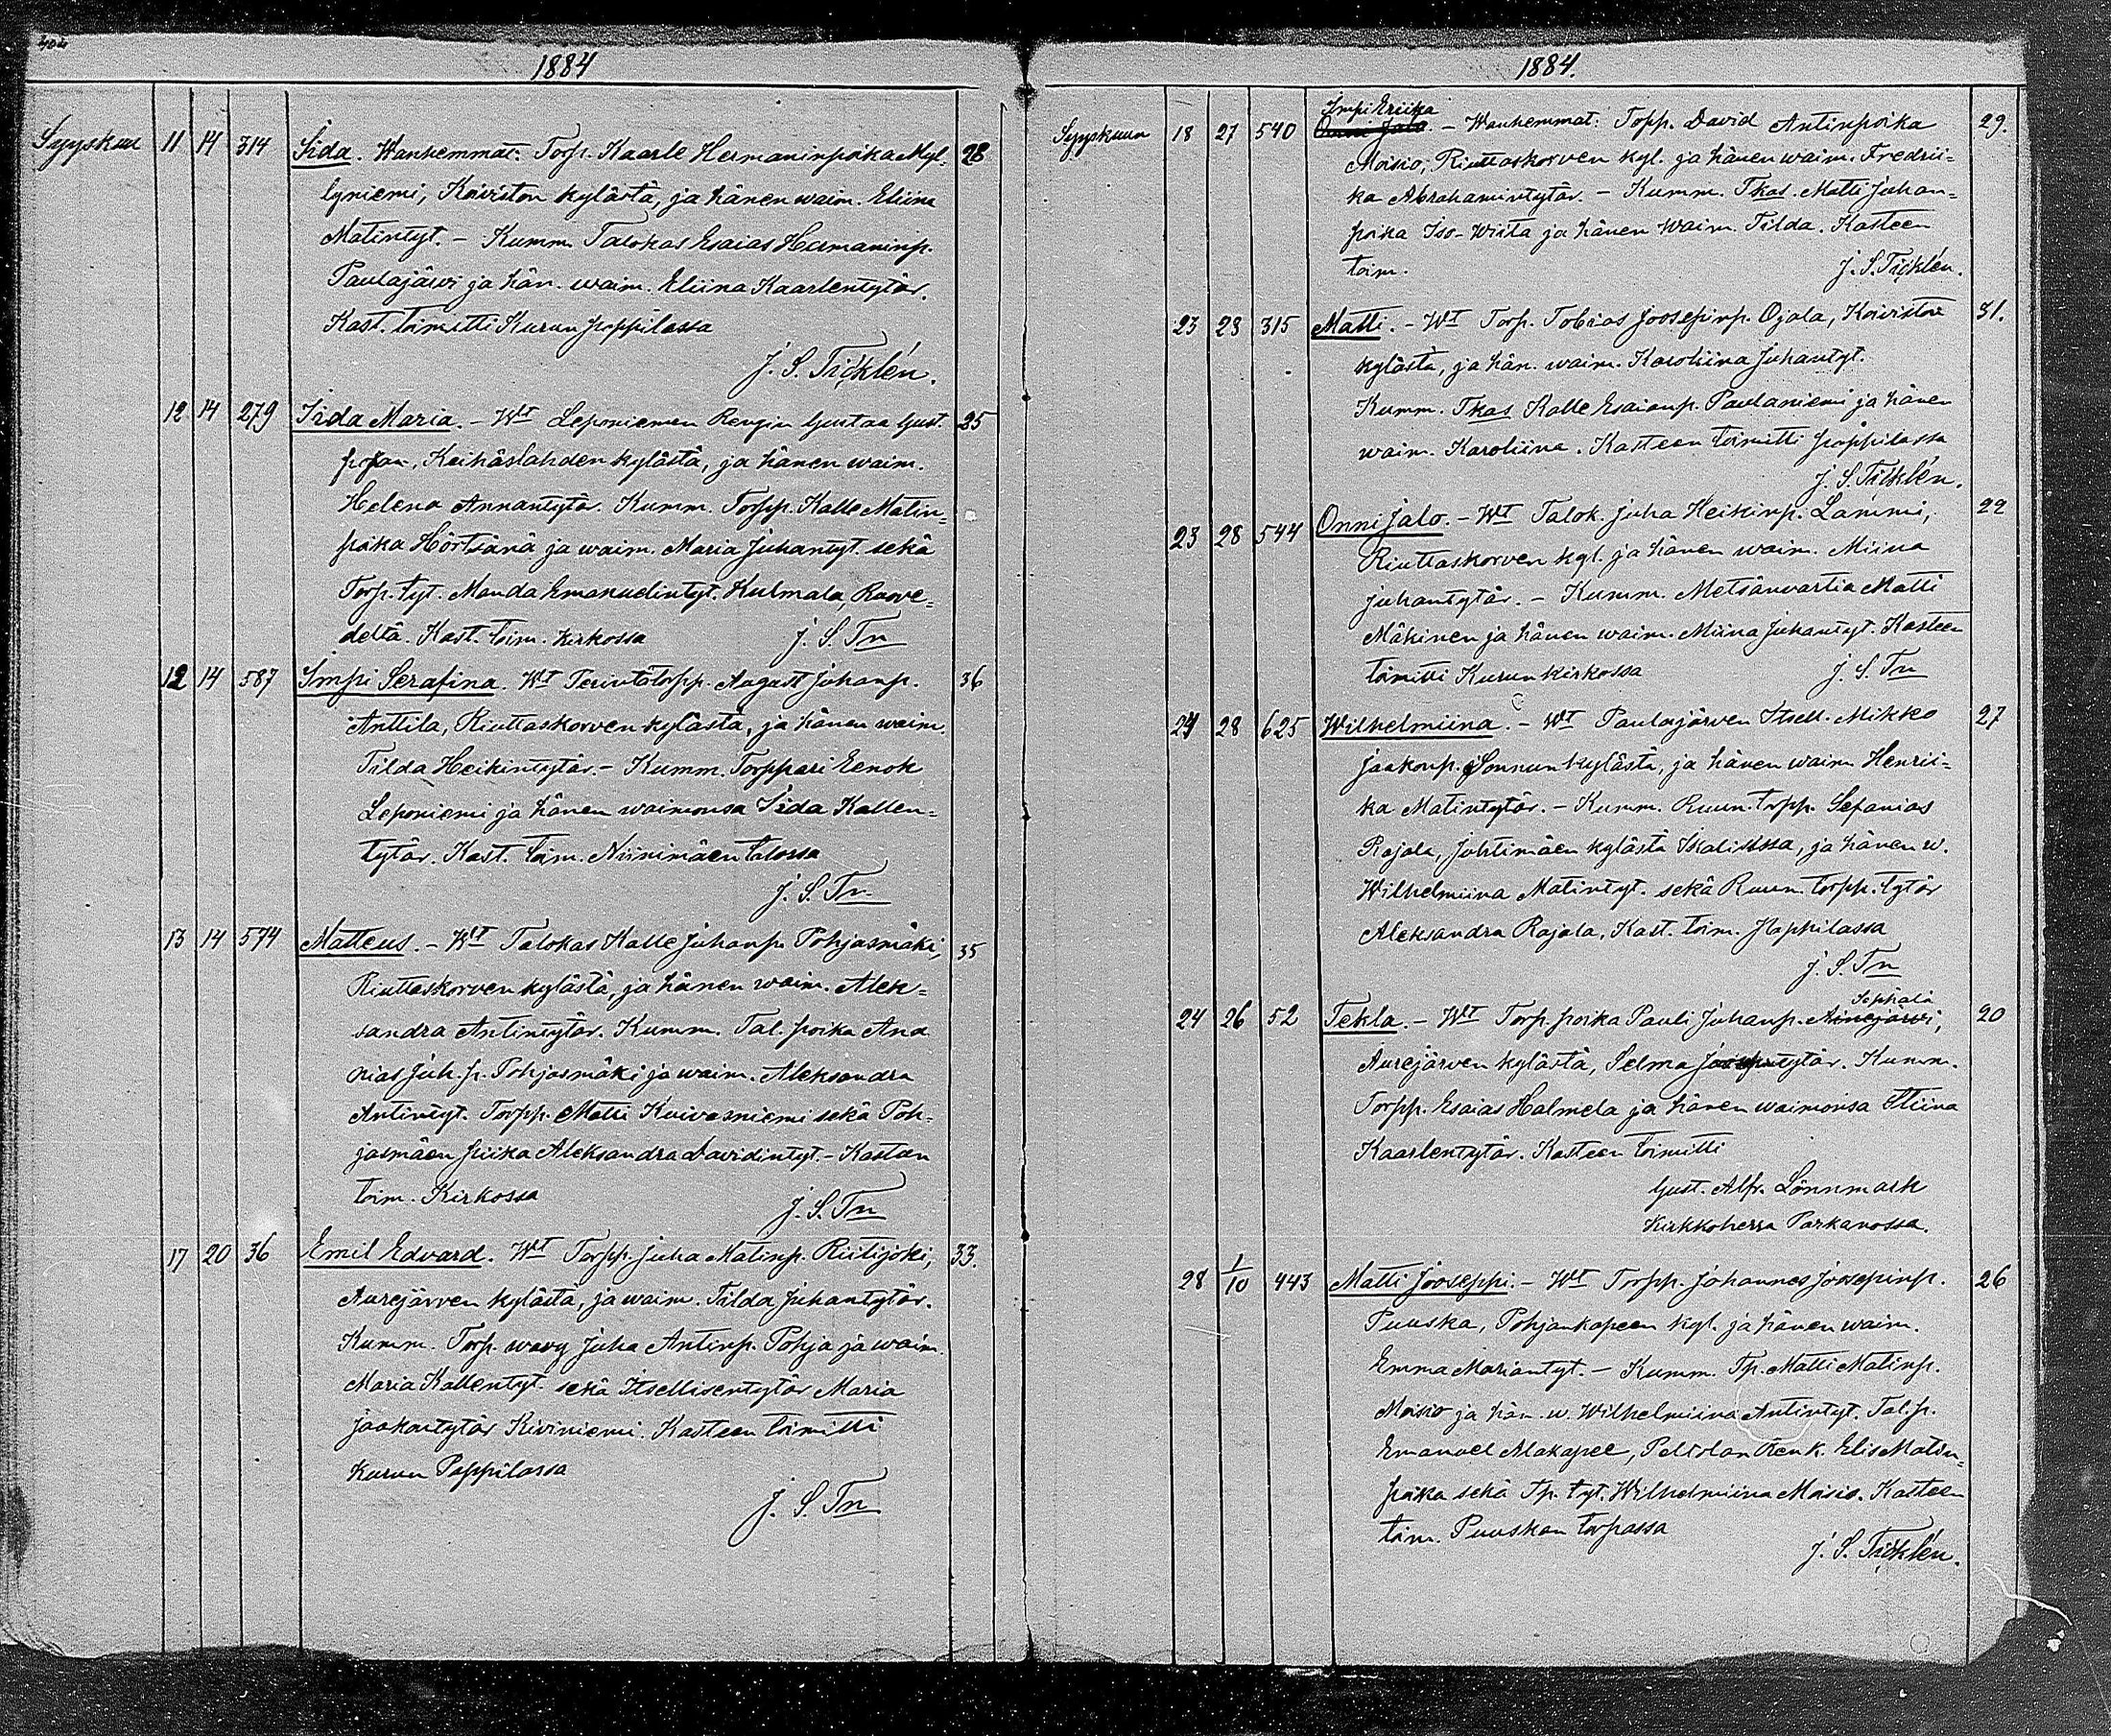 1884
Syyskuu 11 14 314 Iida. Wanhemmat: Torp. Kaarle Hermaninpoika Myl- 28
lyniemi, Koiviston kylästä, ja hänen waim. Eliina
Matintyt. – Kumm. Talokas Esaias Hermaninp.
Paulajärvi ja hän. waim. Eliina Kaarlentytär.
Kast. toimitti Kurun pappilassa
J. S. Ticklén.
12 14 279 Iida Maria. – Wt Leponiemen Rengin Gustaa Gust.
25
pojan, Keihäslahden kylästä, ja hänen waim.
Helena Annantytär. Kumm. Torpp. Kalle Matin=
poika Hörtsänä ja waim. Maria Juhantyt. sekä
Torp. tyt. Manda Emanuelintyt. Kulmala, Roove=
deltä. Kast. toim. Kirkossa J. S. Tn
12 14 587 Impi Serafina. Wt Perintötorpp. August Juhanp. 36
Anttila, Riuttaskorven kylästä, ja hänen waim.
Tilda Heikintytär. – Kumm. Torppari Eenok
Leponiemi ja hänen waimonsa Iida Kallen=
tytär. Kast. toim. Niinimäen talossa
J. S. Tn
13 14 574 Matteus. – Wt Talokas Kalle Juhanp. Pohjasmäki, 35
Riuttaskorven kylästä, ja hänen waim. Alek=
sandra Antintytär. Kumm. Tal. poika Ana
nias Juh. p. Pohjasmäki ja waim. Aleksandra
Antintyt. Torpp. Matti Kuivasniemi sekä Poh-
jasmäen piika Aleksandra Davidintyt. – Kasteen
toim. Kirkossa J. S. Tn
17 20 36 Emil Edvard. Wt Torpp. Juha Matinp. Riitijoki, 33.
Aurejärven kylästä, ja waim. Tilda Juhantytär.
Kumm. Torp. wavy Juha Antinp. Pohja ja waim.
Maria Kallentyt. sekä Itsellisentytär Maria
Jaakontytär Kiviniemi. Kasteen toimitti
Kurun Pappilassa
J. S. Tn
1884.
Impi Eriika
Syyskuun 18 27 540 Onni Jalo. – Wanhemmat: Topp. David Antinpoika 29.
Moisio, Riuttaskorven kyl. ja hänen waim. Fredrii=
ka Abrahamintytär. – Kumm. Tkas. Matti Juhan=
poika Iso-Wiita ja hänen waim. Tilda. Kasteen
toim. J. S. Ticklén.
23 28 315 Matti. – Wt Torp. Tobias Joosepinp. Ojala, Koiviston 31.
kylästä, ja hän. waim. Karoliina Juhantyt.
Kumm. Tkas Kalle Esaianp. Paulaniemi ja hänen
waim. Karoliina. Kasteen toimitti pappilassa
J. S. Ticklén.
23 28 544 Onni Jalo. – Wt Talok. Juha Heikinp. Lammi, 22
Riuttaskorven kyl. ja hänen waim. Miina
Juhantytär. – Kumm. Metsänvartia Matti
Mäkinen ja hänen waim. Miina Juhantyt. Kasteen
toimitti Kurun kirkossa J. S. Tn
24 28 625 Wilhelmiina. – Wt Paulajärven Itsell. Mikko 27
Jaakonp. Sonnun kylästä, ja hänen waim Henrii=
ka Matintytär. – Kumm. Ruun. torpp. Sefanias
Rajala, Juhtimäen kylästä Ikalissa, ja hänen w.
Wilhelmiina Matintyt. sekä Ruun. torpp. tytär
Aleksandra Rajala, Kast. toim. Pappilassa
J. S. Tn
Seppälä
24 26 52 Tekla. – Wt Torp. poika Pauli Juhanp. Ainejärvi, 20
Aurejärven kylästä, Selma Joosepintytär. Kumm.
Torpp. Esaias Halmela ja hänen waimonsa Stiina
Kaarlentytär. Kasteen toimitti
Gust. Alfr. Lönnmark
Kirkkoherra Parkanossa.
28 1/10 443 Matti Jooseppi. – Wt Torpp. Johannes Joosepinp. 26
Puuska, Pohjankapeen kyl. ja hänen waim.
Emma Mariantyt. – Kumm. Tp. Matti Matinp.
Moisio ja hän. w. Wilhelmiina Antintyt. Tal. p.
Emanuel Alakapee, Peltolan Renk. Elis Matin=
poika sekä Tp. tyt. Wilhelmiina Moisio. Kasteen
toim. Puuskan torpassa
J. S. Ticklén.